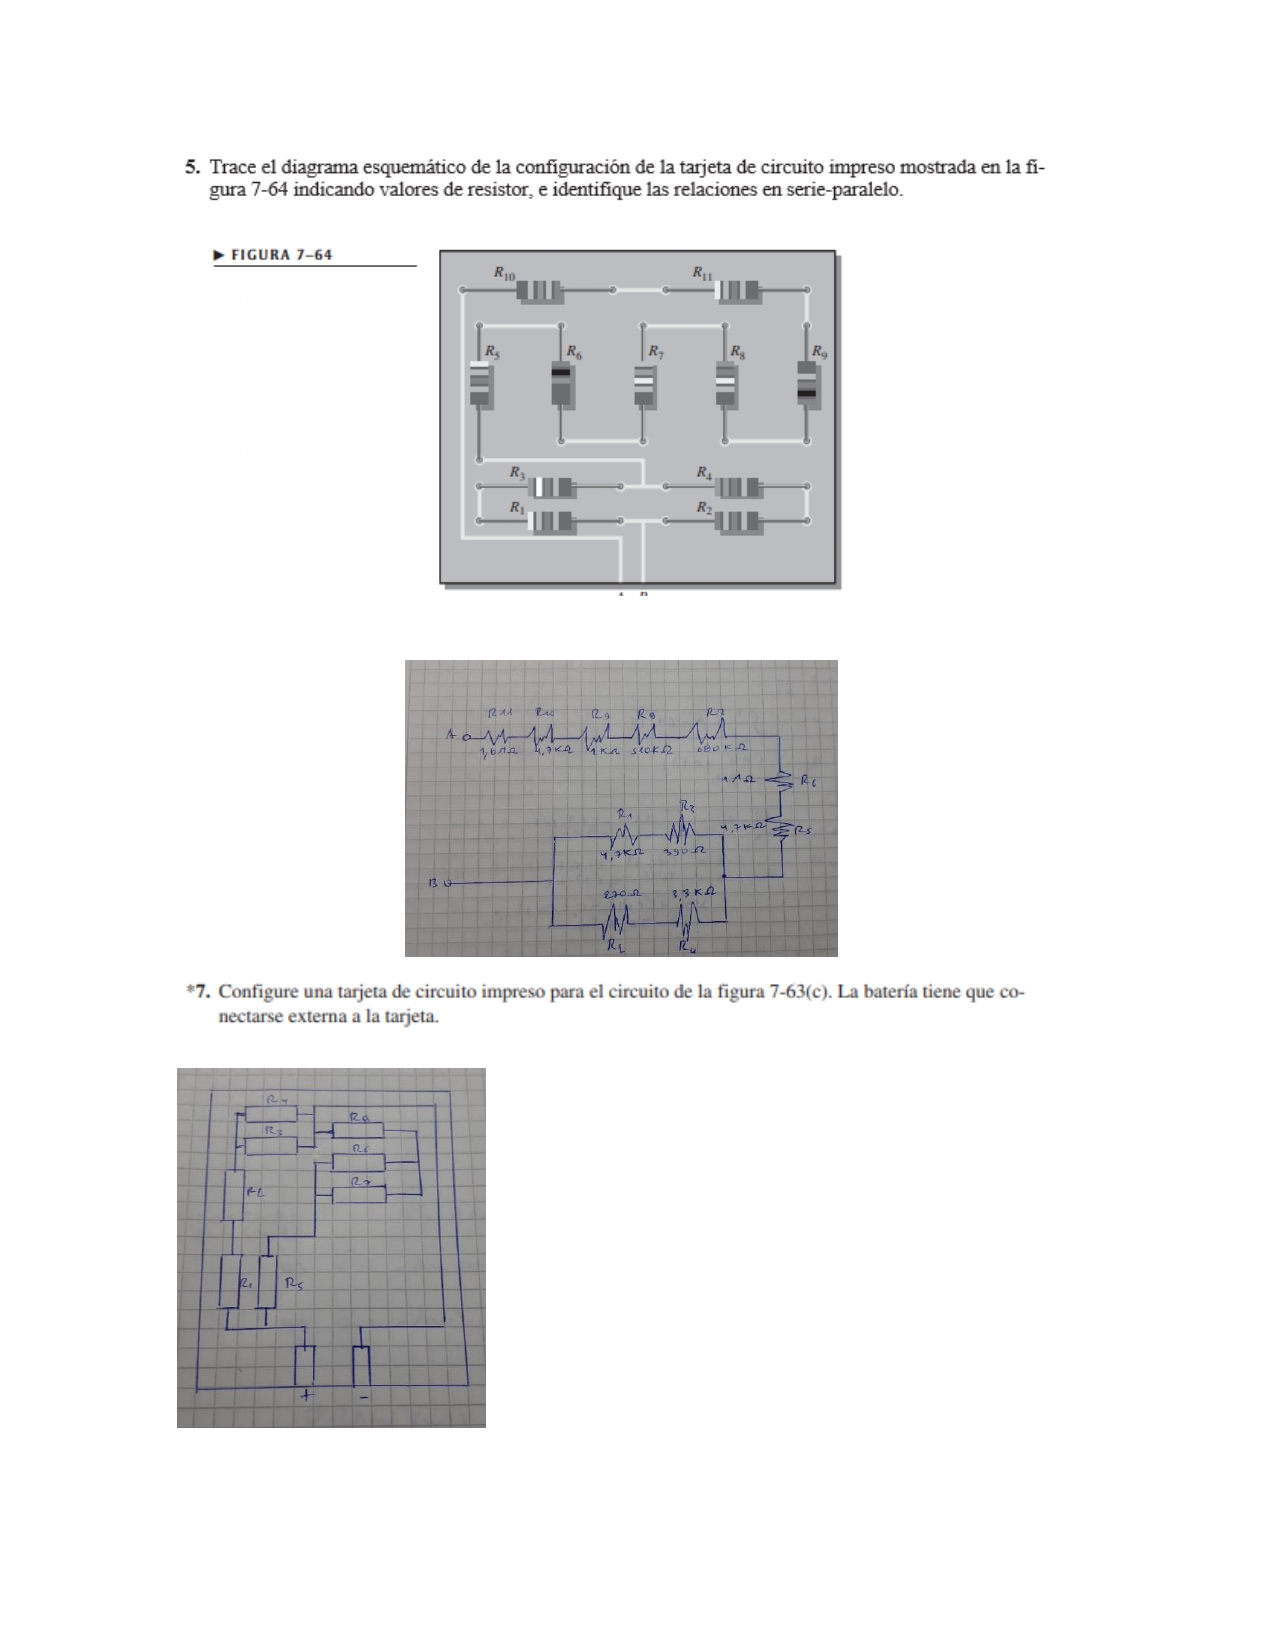 5. Trace el diagrama esquemático de la configuración de la tarjeta de circuito impreso mostrada en la fi-
gura 7-64 indicando valores de resistor, e identifique las relaciones en serie-paralelo.
► FIGURA 7–64
R10 R11
R5 R6 R7 R8 R9
R3 R4
R1 R2
R11 R10 R9 R8 R7
A
4,7KΩ 1KΩ 510KΩ 680KΩ
R6
R1 R3 4,7KΩ R5
4,7KΩ 390Ω
B
270Ω 3,3KΩ
R2 R4
*7. Configure una tarjeta de circuito impreso para el circuito de la figura 7-63(c). La batería tiene que co-
nectarse externa a la tarjeta.
R4
R8
R3
R6
R7
R2
R1 R5
+ -